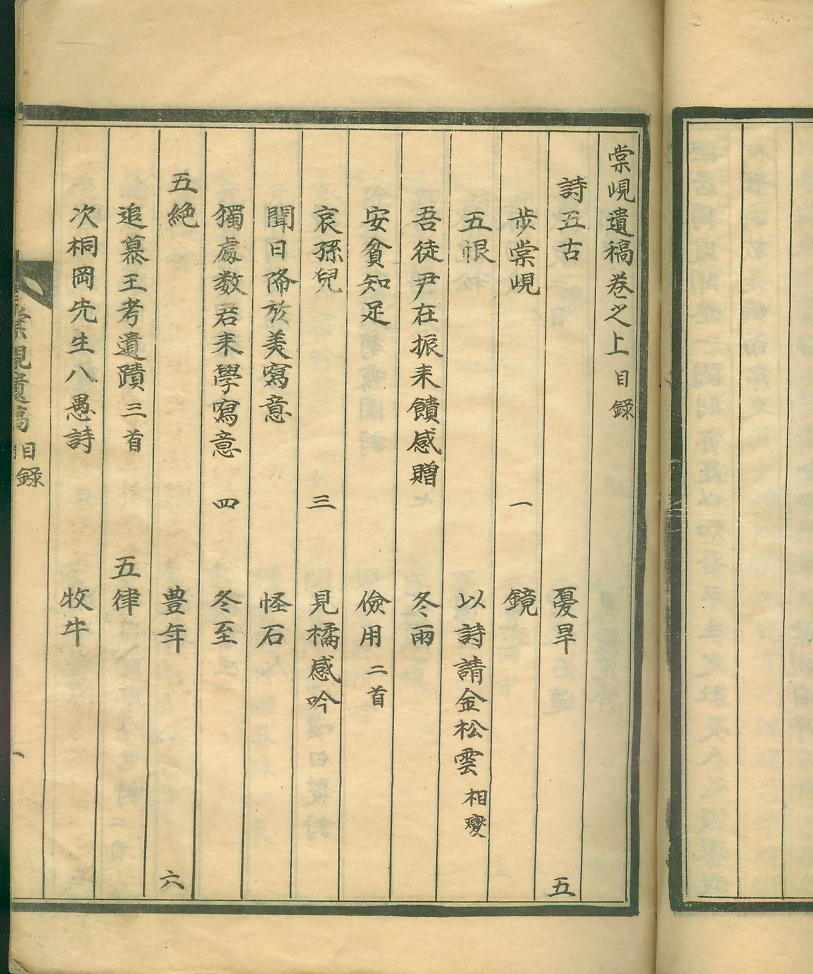 棠峴遺稿卷之上 目錄
詩五古 憂旱 五
步棠峴 一 鏡
五恨 以詩請金松雲 相燮
吾徒尹在振来饋感贈 冬雨
安貧知足 儉用 二首
哀孫兒 三 見橘感吟
聞日降於美寫意 怪石
獨處教君来學寫意 四 冬至
五絶 豊年 六
追慕王考遺蹟 三首 五律
次桐岡先生八愚詩 牧牛
棠峴遺稿 目錄